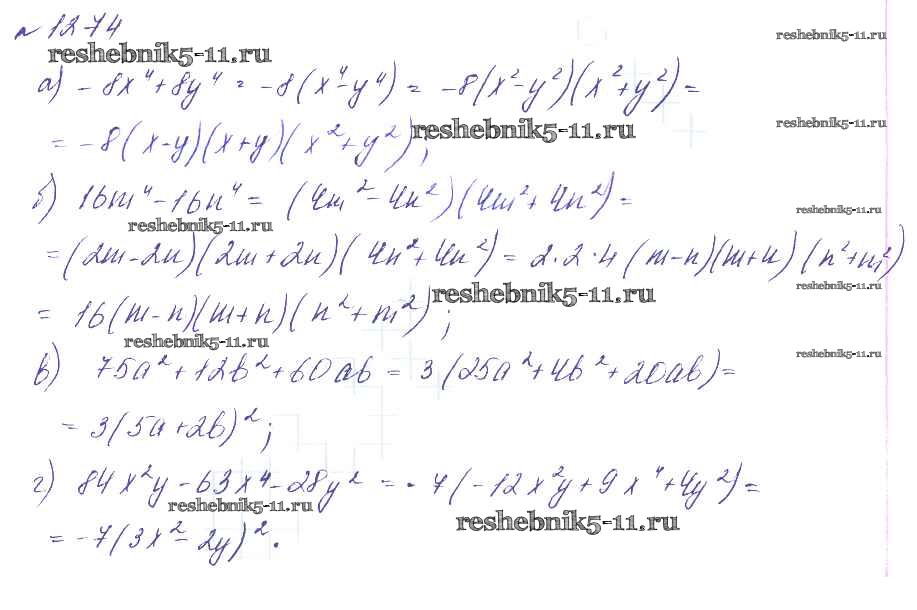 № 1274
reshebnik5-11.ru
reshebnik5-11.ru
а) -8x⁴+8y⁴ = -8(x⁴-y⁴) = -8(x²-y²)(x²+y²) =
= -8(x-y)(x+y)(x²+y²);
reshebnik5-11.ru
reshebnik5-11.ru
б) 16m⁴-16n⁴ = (4m²-4n²)(4m²+4n²) =
reshebnik5-11.ru
reshebnik5-11.ru
= (2m-2n)(2m+2n)(4n²+4n²) = 2·2·4(m-n)(m+n)(n²+m²)
reshebnik5-11.ru
= 16(m-n)(m+n)(n²+m²);
reshebnik5-11.ru
reshebnik5-11.ru
reshebnik5-11.ru
в) 75a²+12b²+60ab = 3(25a²+4b²+20ab) =
= 3(5a+2b)²;
г) 84x²y-63x⁴-28y² = -7(-12x²y+9x⁴+4y²) =
reshebnik5-11.ru
reshebnik5-11.ru
= -7(3x²-2y)².